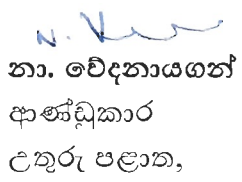 නා. වේදනායගන්
ආණ්ඩුකාර
උතුරු පළාත,